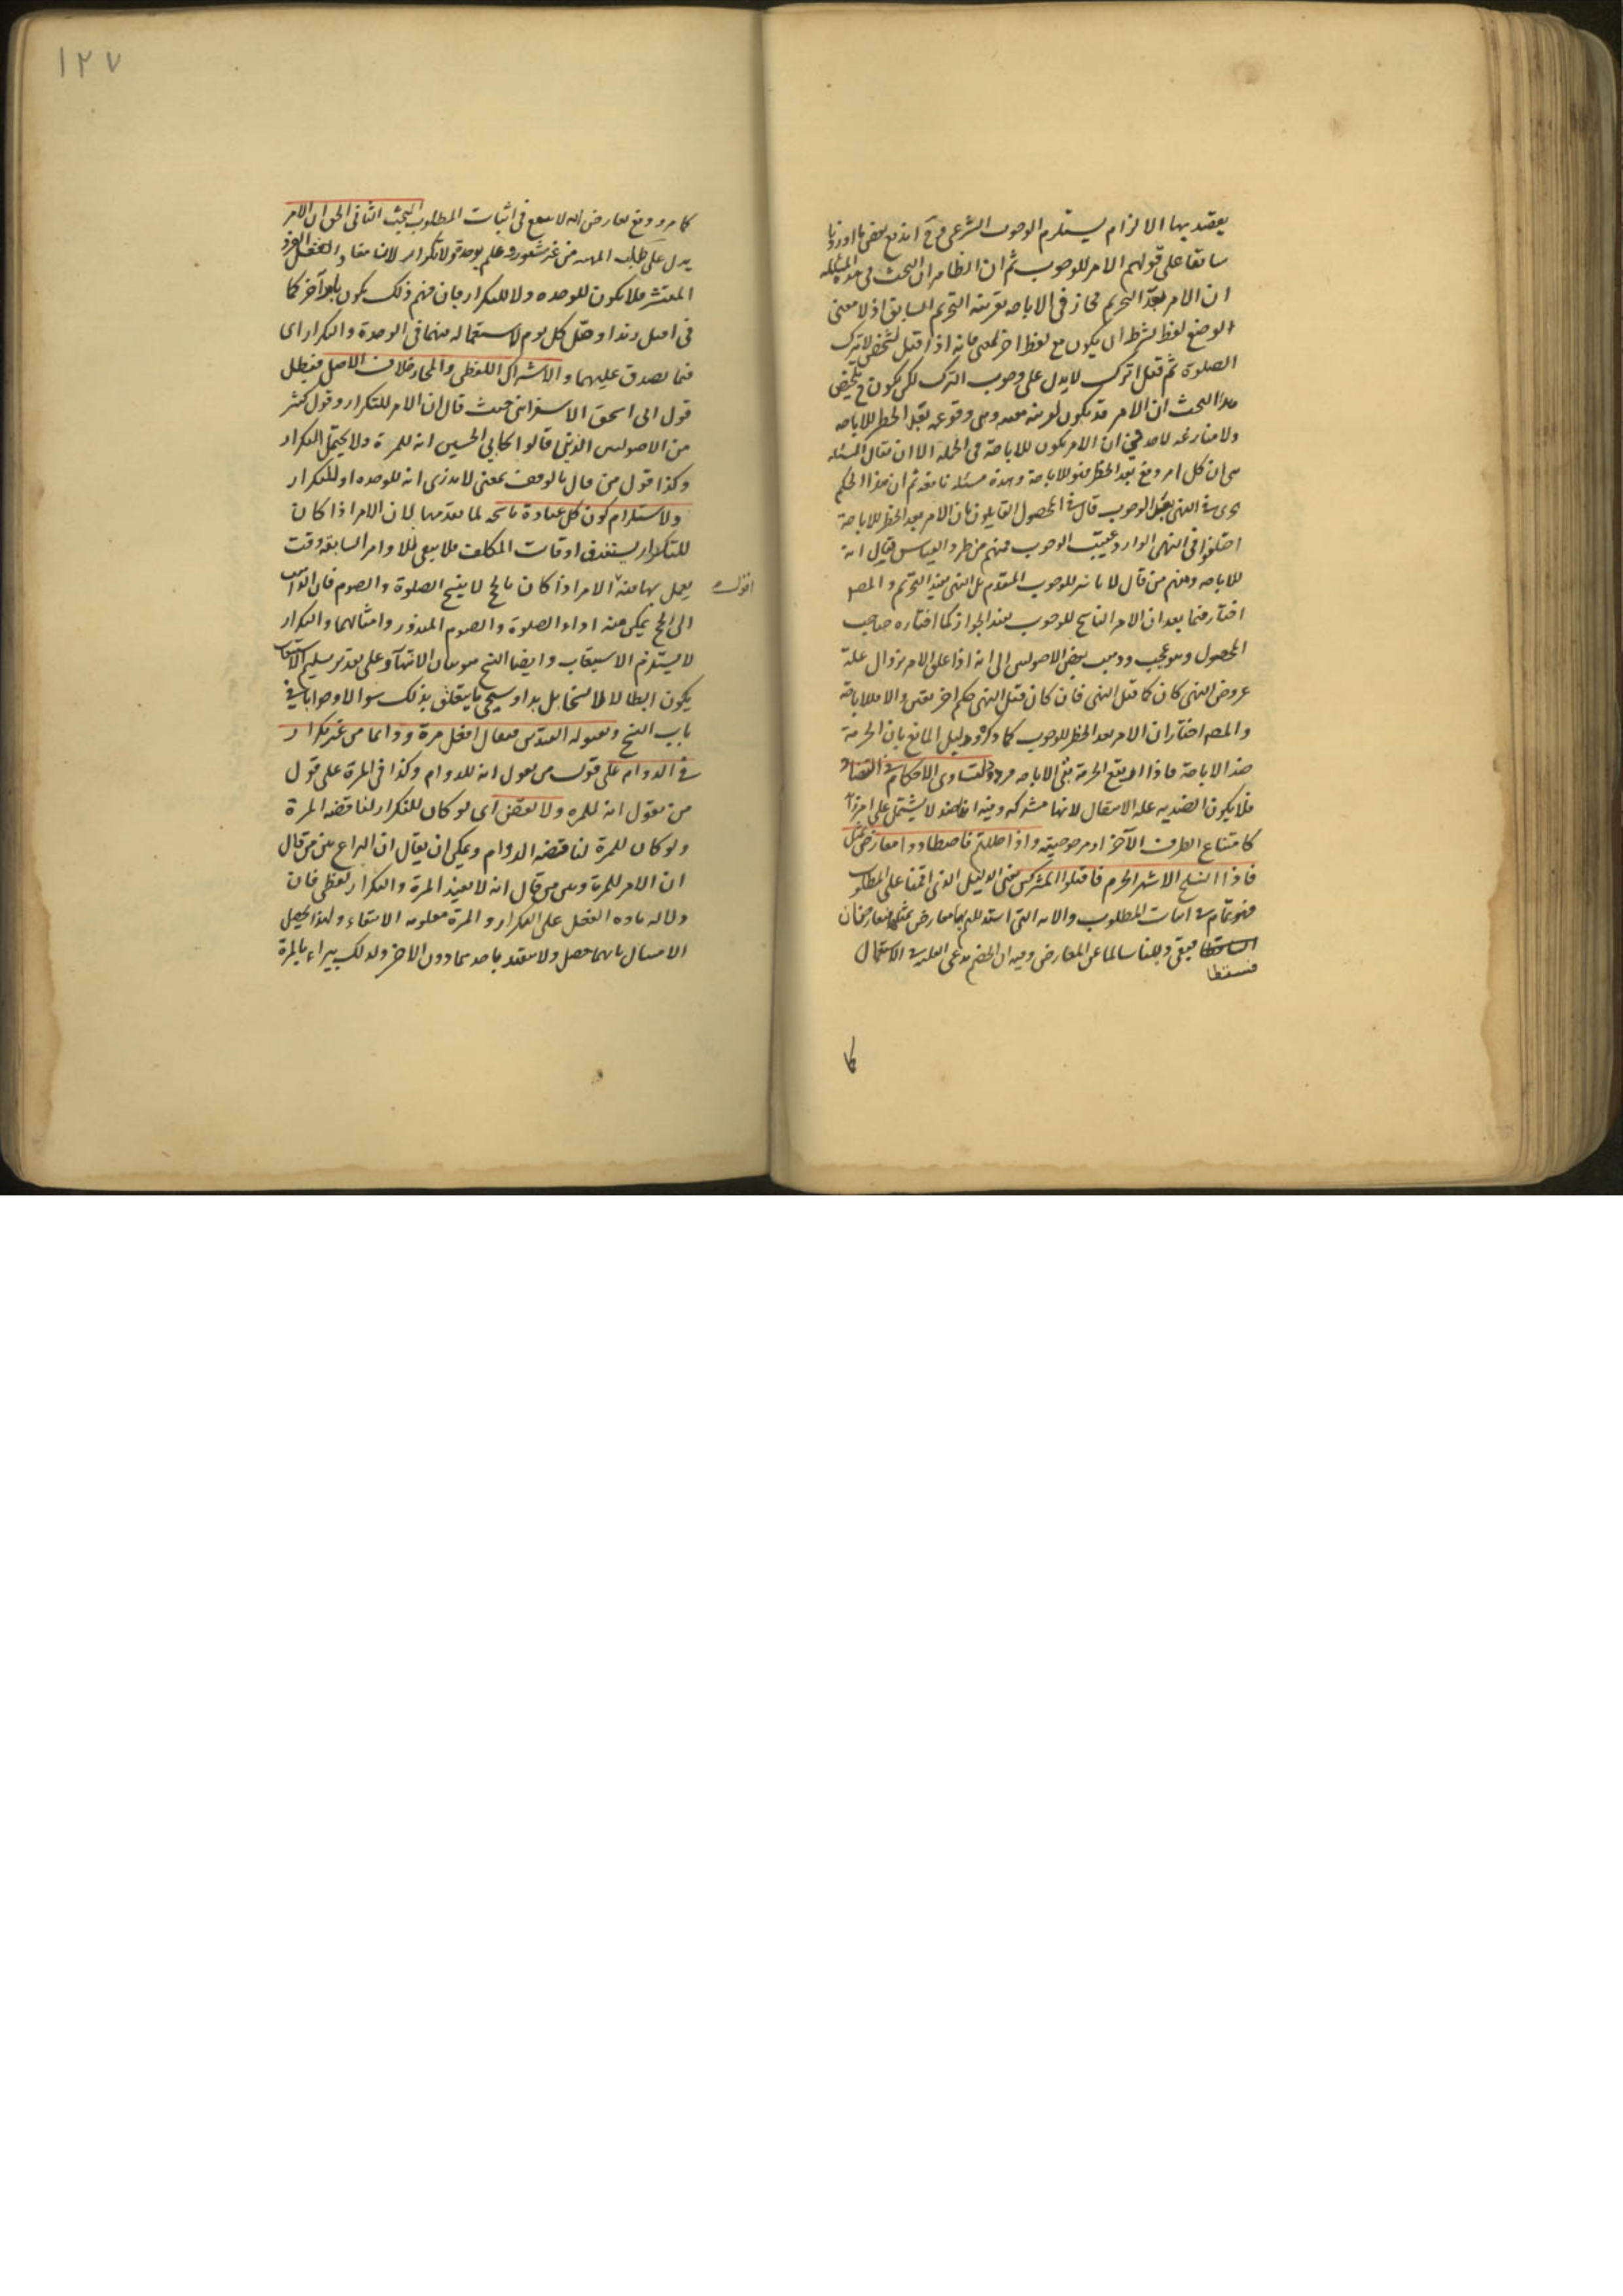 يعتد بها الالزام يستلزم الوجوب الشرعى وح اندفع بعض ما اوردنا
سابقا على قولهم الامر للوجوب ثم ان الظاهر ان البحث فى هذه المسئله
ان الامر بعد التحريم مجاز فى الاباحه بقرينة التحريم السابق اذ لا معنى
لوضع لفظ بشرط ان يكون مع لفظ اخر لمعنى فانه اذا قيل لشخص لا تترك
الصلوة ثم قيل اترك لا يدل على وجوب الترك لكن يكون ح تلخيص
هذا البحث ان الامر قد يكون لقرينة معه وهى وقوعه بعد الحظر للاباحه
ولا منازعه لاحد فى ان الامر يكون للاباحة فى الجملة الا ان يقال المسئله
هى ان كل امر وقع بعد الحظر فهو للاباحة وهذه مسئله نافعه ثم ان هذا الحكم
جرى فى النهى بعد الوجوب قال فى المحصول القايلون بان الامر بعد الحظر للاباحة
اختلفوا فى النهى الوارد عقيب الوجوب فمنهم من طرد القياس فقال انه
للاباحه ومنهم من قال لا تاثير للوجوب المتقدم بل النهى يفيد التحريم والمص
اختار فيما بعد ان الامر الناسخ للوجوب يفيد الجواز كما اختاره صاحب
المحصول وهو عجب وذهب بعض الاصوليين الى انه اذا علق الامر بزوال علة
عروض النهى كان كما قبل النهى فان كان قبل النهى حكم اخر بقى والا فللاباحة
والمص اختار ان الامر بعد الحظر للوجوب كما ذكره ودليل المانع بان الحرمة
ضد الاباحة فاذا ارتفع الحرمة بقى الاباحه مردود لتساوى الاحكام فى التضاد
فلا يكون الضديه علة الانتقال لانها مشتركه وفيه لا يشتمل على امر زائد
كامتناع الطرف الآخر او مرجوحيته واذا حللتم فاصطادوا معارض بمثل
فاذا انسلخ الاشهر الحرم فاقتلوا المشركين يعنى الدليل الذى اقمنا على المطلوب
فهو تمام فى اثبات المطلوب والايه التى استدللتم بها معارض بمثلها فتعارضان
فيبقى دليلنا سالما عن المعارض وفيه ان الخصم يدعى الغلبة فى الاستعمال
فتسقطا
كا
١٢٧
كما مر ووقع تعارض الايه لا ينفع فى اثبات المطلوب البحث الثانى الحق ان الامر
يدل على طلب المهيه من غير شعور وعلم بوحدة ولا تكرار لان مفاد الفعل الفرد
المنتشر فلا يكون للوحده ولا للتكرار فان فهم ذلك يكون بامر آخر كما
فى اقتل زيدا وصل كل يوم لاستعماله فيهما فى الوحدة والتكرار اى
فيما يصدق عليهما والاشتراك اللفظى والمجاز خلاف الاصل فيبطل
قول ابى اسحق الاسفراينى حيث قال ان الامر للتكرار وقول كثير
من الاصوليين الذين قالوا كابى الحسين انه للمرة ولا يحتمل التكرار
وكذا قول من قال بالوقف بمعنى لا ندرى انه للوحده او للتكرار
ولاستلزام كون كل عبادة ناسخه لما تقدمها لان الامر اذا كان
للتكرار يستغرق اوقات المكلف فلا يبقى للاوامر السابقه وقت
يعمل بها فيه الامر اذا كان بالحج لا ينسخ الصلوة والصوم فان الذاهب
اقول
الى الحج يمكن منه اداء الصلوة والصوم المنذور وامثالهما والتكرار
لا يستلزم الاستيعاب وايضا النسخ هو بيان الانتهاء وعلى تقدير تسليم الاستيعاب
يكون ابطالا لا نسخا بل بداء وسيجى ما يتعلق بذلك سوالا وجوابا فى
باب النسخ ولقبوله القيدين فيقال افعل مرة ودائما من غير تكرار
فى الدوام على قول من يقول انه للدوام وكذا فى المرة على قول
من يقول انه للمره ولا نقض اى لو كان للتكرار لناقضه المرة
ولو كان للمرة لناقضه الدوام ويمكن ان يقال ان النزاع بين من قال
ان الامر للمرة وبين من قال انه لا يفيد المرة والتكرار لفظى فان
دلاله ماده الفعل على التكرار والمرة معلومه الانتفاء ولهذا يحصل
الامتثال بايهما حصل ولا يتقيد باحديهما دون الاخر ولذلك يبراء بالمرة